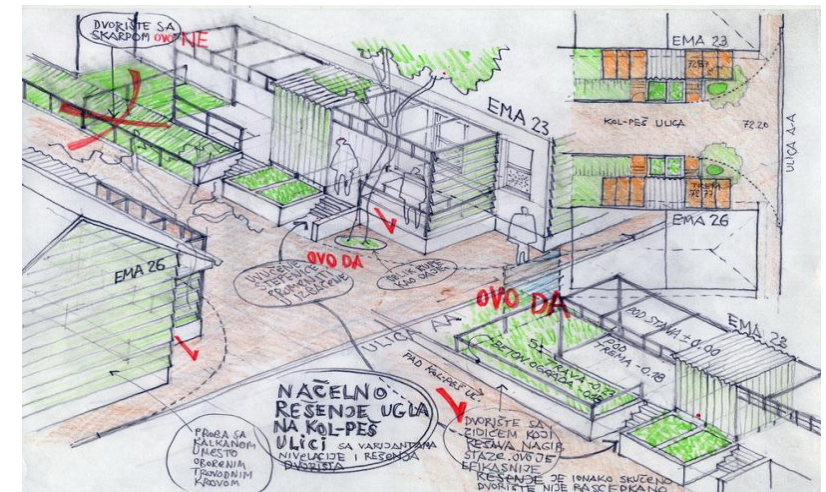 DVORIŠTE SA
ŠKARPOM OVO NE
EMA 23
EMA 23
KOL-PEŠ ULICA
72.20
ULICA A-A
TREM
EMA 26
EMA 26
OVO DA
UVUČENE
STEPENICE
OVO DA
ULICA AA
PAD KOL-PEŠ UL.
POD STANA ±0.00
POD
TREMA -0.18
EMA 23
TRAVA
BETON OGRADA
NAČELNO
REŠENJE UGLA
NA KOL-PEŠ
ULICI SA VARIJANTAMA
NIVELACIJE I REŠENJA
DVORIŠTA
PROBA SA
KALKANOM
UMESTO
OBORENIM
TROVODNIM
KROVOM
DVORIŠTE SA
ZIDIĆEM KOJI
REŠAVA NAGIB
STAZE. OVO JE
EFIKASNIJE
REŠENJE JE IONAKO SKUČENO
DVORIŠTE NIJE RASCEPKANO